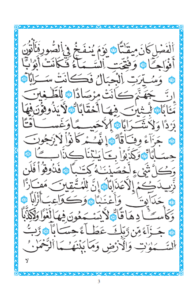 الفصل كان ميقاتا يوم ينفخ في الصور فتأتون
أفواجا وفتحت السماء فكانت أبوابا
وسيرت الجبال فكانت سرابا
إن جهنم كانت مرصادا للطاغين
مآبا لابثين فيها أحقابا لا يذوقون فيها
بردا ولا شرابا إلا حميما وغساقا
جزاء وفاقا إنهم كانوا لا يرجون
حسابا وكذبوا بآياتنا كذابا
وكل شيء أحصيناه كتابا فذوقوا فلن
نزيدكم إلا عذابا إن للمتقين مفازا
حدائق وأعنابا وكواعب أترابا
وكأسا دهاقا لا يسمعون فيها لغوا ولا كذابا
جزاء من ربك عطاء حسابا رب
السموات والأرض وما بينهما الرحمن